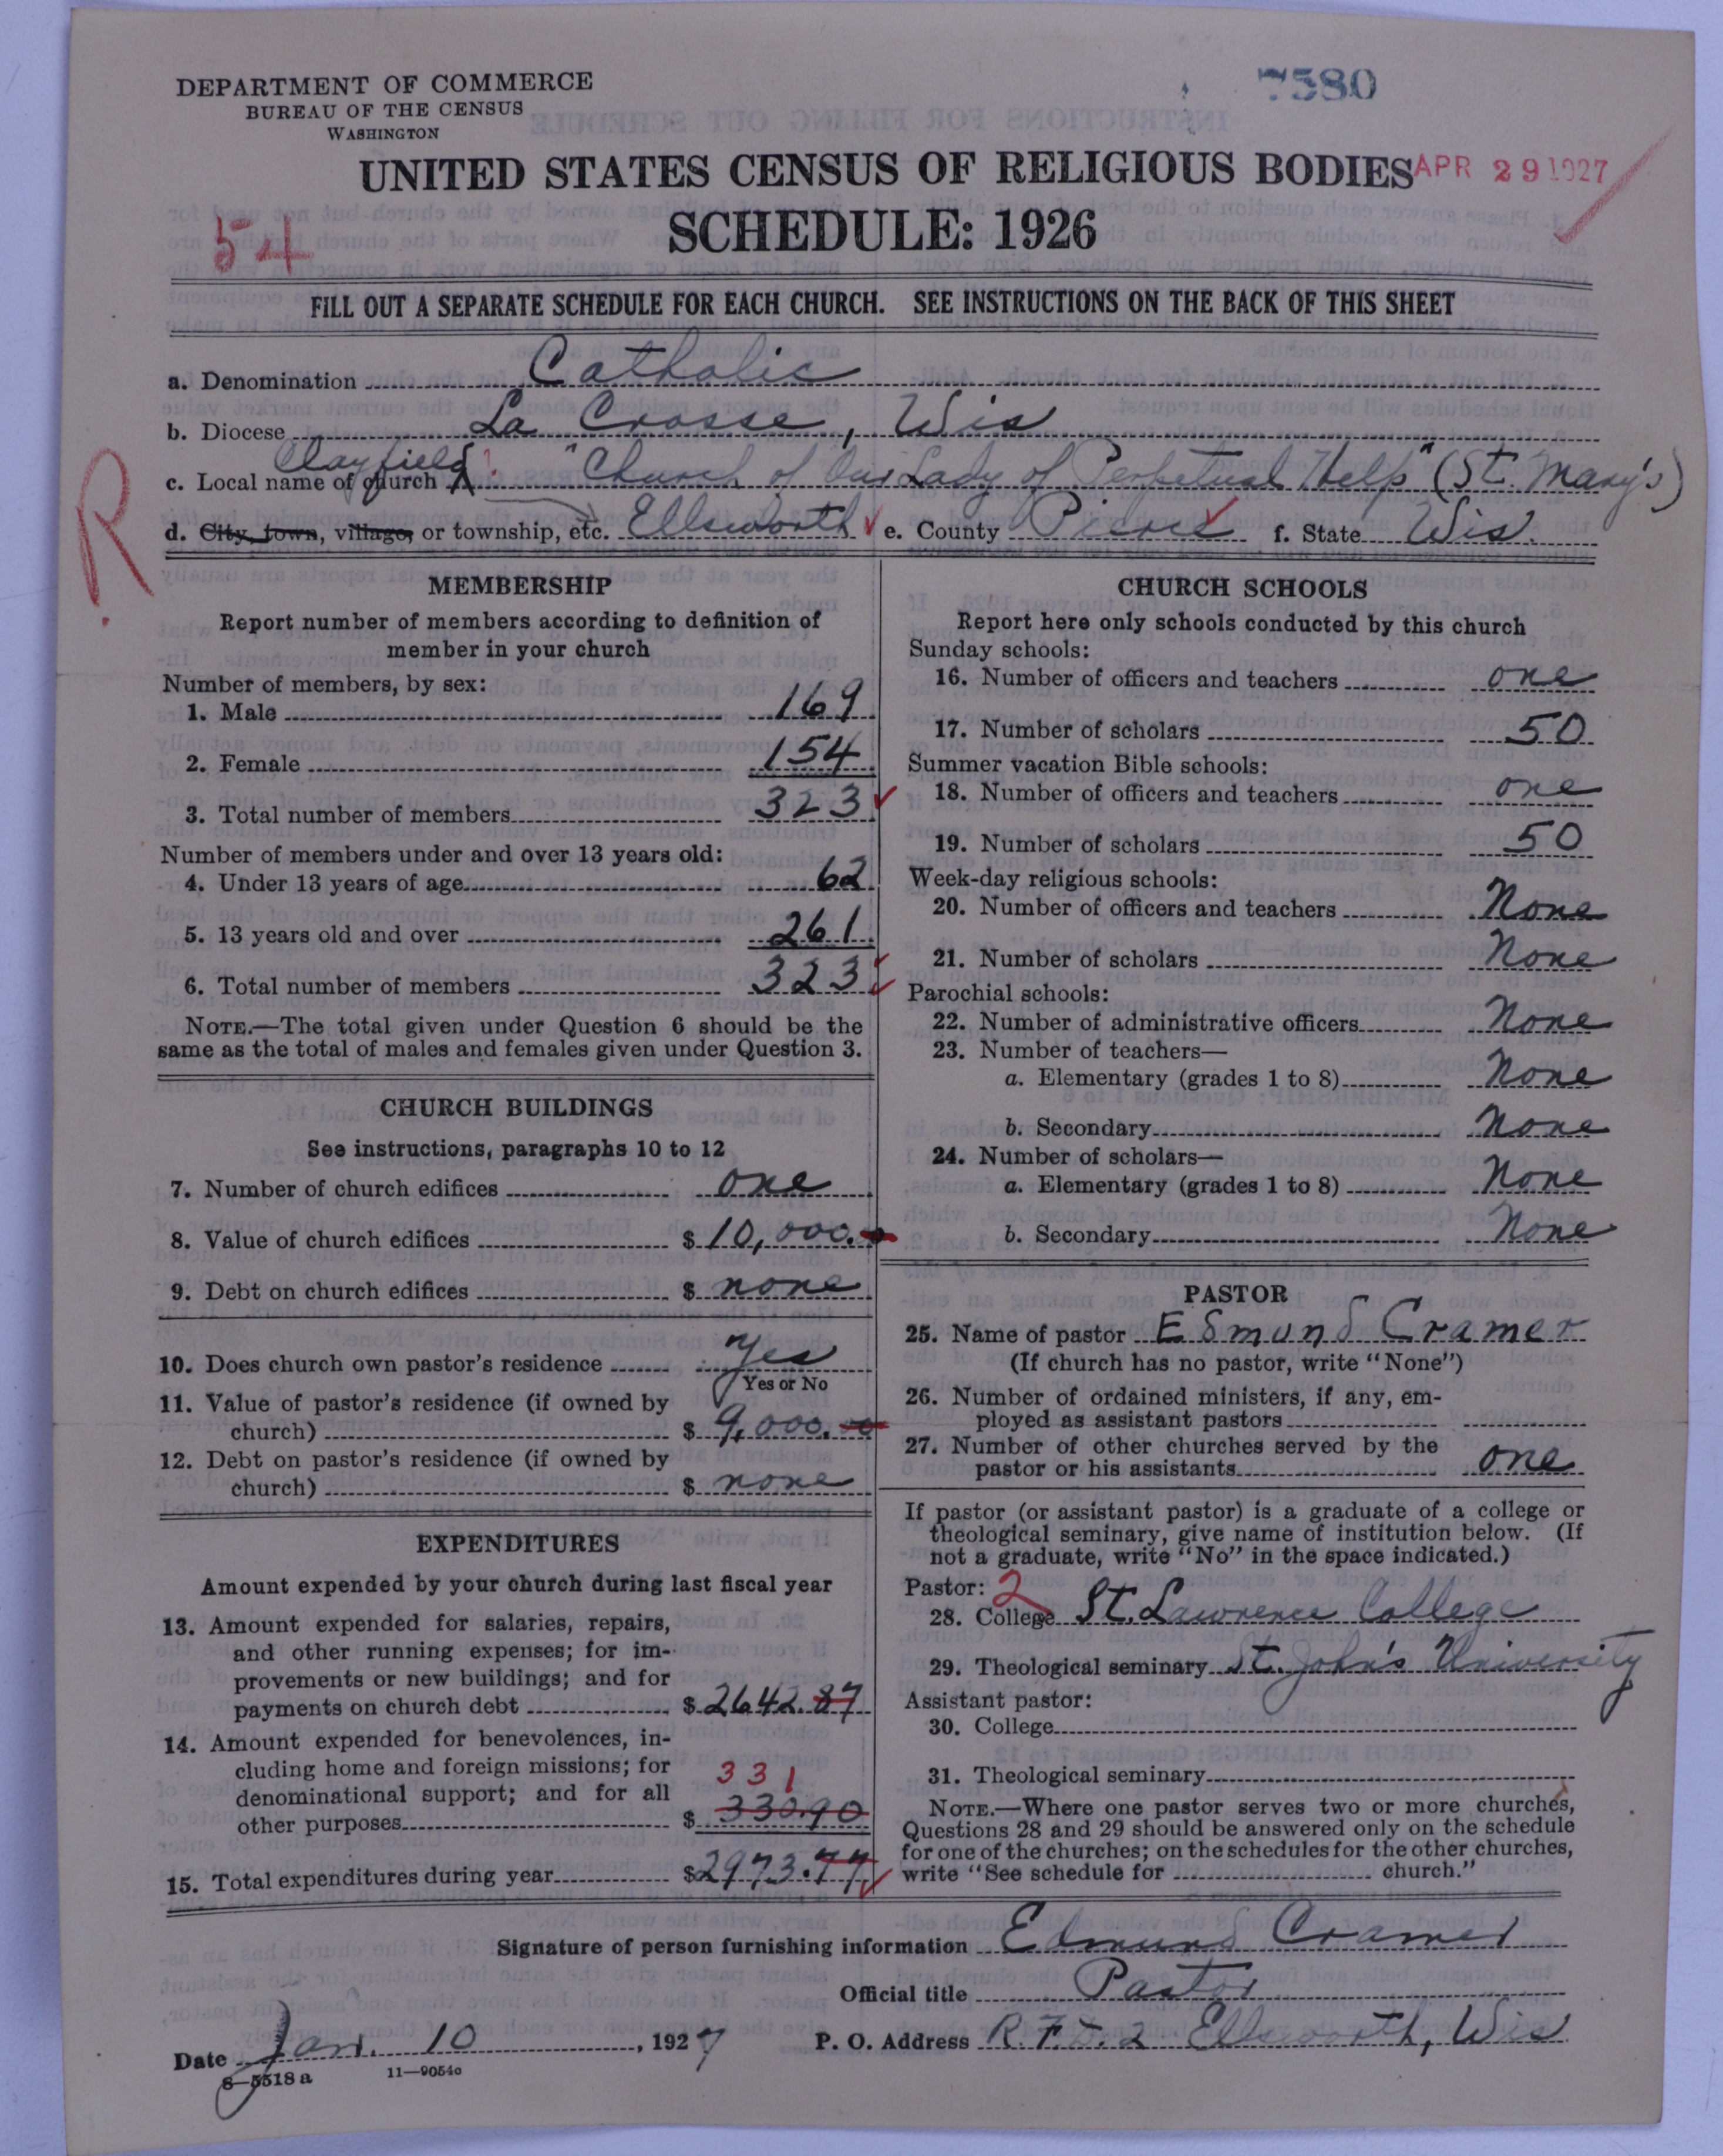 DEPARTMENT OF COMMERCE
BUREAU OF THE CENSUS
WASHINGTON
7580
UNITED STATES CENSUS OF RELIGIOUS BODIES
APR 29 1927
54
SCHEDULE: 1926
FILL OUT A SEPARATE SCHEDULE FOR EACH CHURCH. SEE INSTRUCTIONS ON THE BACK OF THIS SHEET
a. Denomination Catholic
b. Diocese La Crosse, Wis
Clayfield
c. Local name of church "Church of Our Lady of Perpetual Help" (St. Mary's)
R
d. City, town, village, or township, etc. Ellsworth e. County Pierce f. State Wis.
MEMBERSHIP
Report number of members according to definition of
member in your church
Number of members, by sex:
1. Male 169
2. Female 154
3. Total number of members 323
Number of members under and over 13 years old:
4. Under 13 years of age 62
5. 13 years old and over 261
6. Total number of members 323
NOTE.—The total given under Question 6 should be the
same as the total of males and females given under Question 3.
CHURCH BUILDINGS
See instructions, paragraphs 10 to 12
7. Number of church edifices one
8. Value of church edifices $ 10,000.
9. Debt on church edifices $ none
10. Does church own pastor's residence yes
Yes or No
11. Value of pastor's residence (if owned by
church) $ 9,000.
12. Debt on pastor's residence (if owned by
church) $ none
EXPENDITURES
Amount expended by your church during last fiscal year
13. Amount expended for salaries, repairs,
and other running expenses; for im-
provements or new buildings; and for
payments on church debt $ 2642.87
14. Amount expended for benevolences, in-
cluding home and foreign missions; for
denominational support; and for all
331
other purposes $ 330.90
15. Total expenditures during year $ 2973.77
CHURCH SCHOOLS
Report here only schools conducted by this church
Sunday schools:
16. Number of officers and teachers one
17. Number of scholars 50
Summer vacation Bible schools:
18. Number of officers and teachers one
19. Number of scholars 50
Week-day religious schools:
20. Number of officers and teachers None
21. Number of scholars None
Parochial schools:
22. Number of administrative officers None
23. Number of teachers—
a. Elementary (grades 1 to 8) None
b. Secondary None
24. Number of scholars—
a. Elementary (grades 1 to 8) None
b. Secondary None
PASTOR
25. Name of pastor Edmund Cramer
(If church has no pastor, write "None")
26. Number of ordained ministers, if any, em-
ployed as assistant pastors
27. Number of other churches served by the
pastor or his assistants one
If pastor (or assistant pastor) is a graduate of a college or
theological seminary, give name of institution below. (If
not a graduate, write "No" in the space indicated.)
Pastor: 2
28. College St. Lawrence College
29. Theological seminary St. John's University
Assistant pastor:
30. College
31. Theological seminary
NOTE.—Where one pastor serves two or more churches,
Questions 28 and 29 should be answered only on the schedule
for one of the churches; on the schedules for the other churches,
write "See schedule for church."
Signature of person furnishing information Edmund Cramer
Official title Pastor
Date Jan. 10, 1927 P. O. Address R.F.D. 2 Ellsworth, Wis
8—5518 a 11—9054c